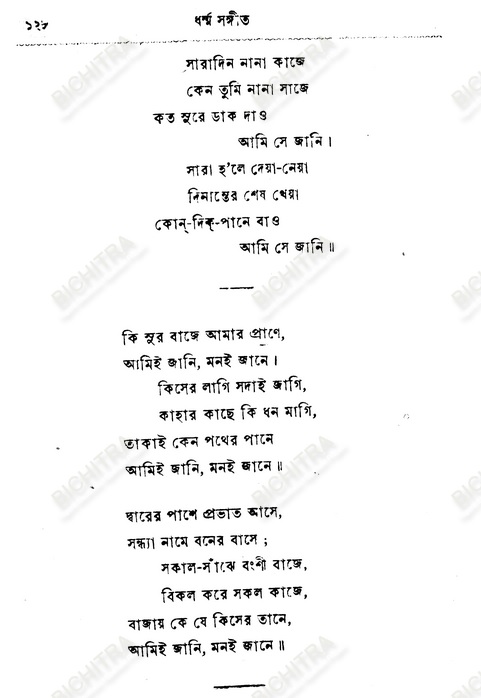 ১২৮
ধর্ম্ম সঙ্গীত
সারাদিন নানা কাজে
কেন তুমি নানা সাজে
কত সুরে ডাক দাও
আমি সে জানি।
সারা হ'লে দেয়া-নেয়া
দিনান্তের শেষ খেয়া
কোন্-দিক্-পানে বাও
আমি সে জানি॥
কি সুর বাজে আমার প্রাণে,
আমিই জানি, মনই জানে।
কিসের লাগি সদাই জাগি,
কাহার কাছে কি ধন মাগি,
তাকাই কেন পথের পানে
আমিই জানি, মনই জানে॥
দ্বারের পাশে প্রভাত আসে,
সন্ধ্যা নামে বনের বাসে;
সকাল-সাঁঝে বংশী বাজে,
বিকল করে সকল কাজে,
বাজায় কে যে কিসের তানে,
আমিই জানি, মনই জানে॥
BICHITRA